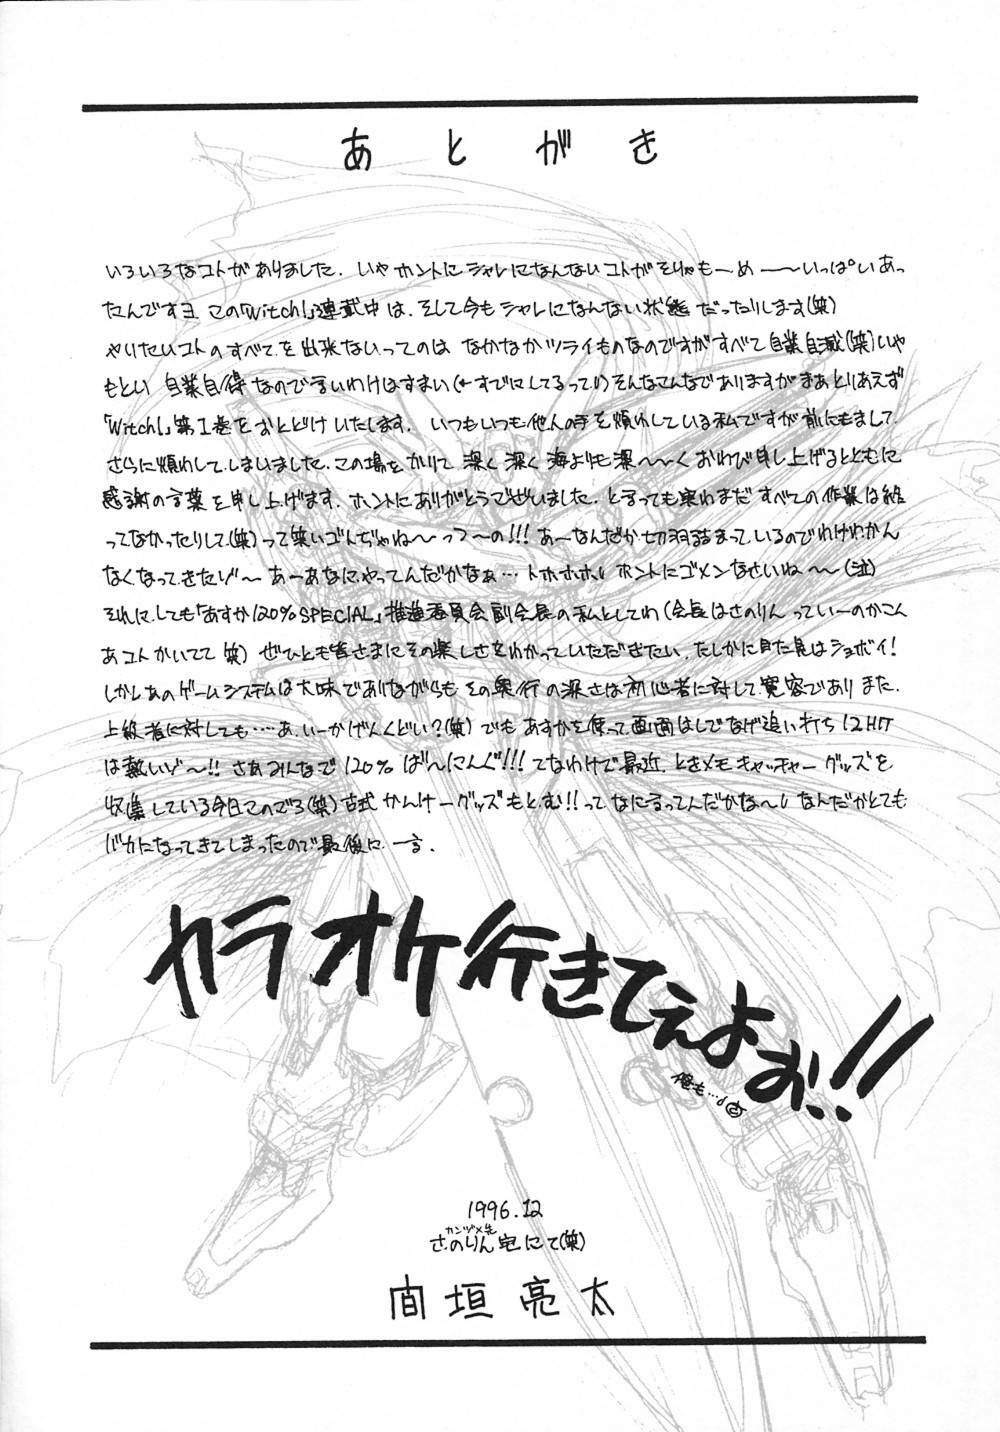 あとがき
いろいろなコトがありました. いやホントにシャレになんないコトがそりゃもーめー〜いっぱいあっ
たんですヨ この「Witch!」連載中は、そして今もシャレになんない状態だったりします(笑)
やりたいコトのすべてを出来ないってのは なかなかツライものなのですがすべて自業自滅(笑)いや
もとい 自業自得なので言いわけはすまい(←すでにしてるって!)そんなこんなでありますがまあとりあえず
「Witch!」第1巻をおとどけいたします. いつもいつも他人の手を煩わしている私ですが前にもまして
さらに煩わしてしまいました. この場をかりて深く深く海よりも深〜〜くおわび申し上げるとともに
感謝の言葉を申し上げます. ホントにありがとうございました. と言っても実わまだすべての作業は終
ってなかったりして(笑)って笑いゴトぢゃね〜っつ〜の!!! あーなんだか切羽詰まっているのでわけわかん
なくなってきたゾ〜 あーあなにやってんだかなぁ… トホホホ ホントにゴメンなさいね〜(泣)
それにしても「あすか120%SPECIAL」推進委員会副会長の私としてわ(会長はさのりん っていーのかこん
あコトかいてて 笑) ぜひとも皆さまにその楽しさをわかっていただきたい. たしかに見た目はショボイ!
しかしあのゲームシステムは大味でありながらもその奥行の深さは初心者に対して寛容でありまた.
上級者に対しても…‥あ.いーかげんくどい?(笑) でもあすかを使って画面はしでなげ追い打ち12HIT
は熱いゾ〜!! さあみんなで120%ば〜にんぐ!!! てなわけで最近. ときメモキャッチャーグッズを
収集している今日このごろ(笑)古式かんけーグッズもとむ!!ってなにるってんだかな〜 なんだかとても
バカになってきてしまったので最後に一言.
カラオケ行きてぇよぉ..!!
俺も…
1996.12
カンヅメ先
さのりん宅にて(笑)
間垣亮太